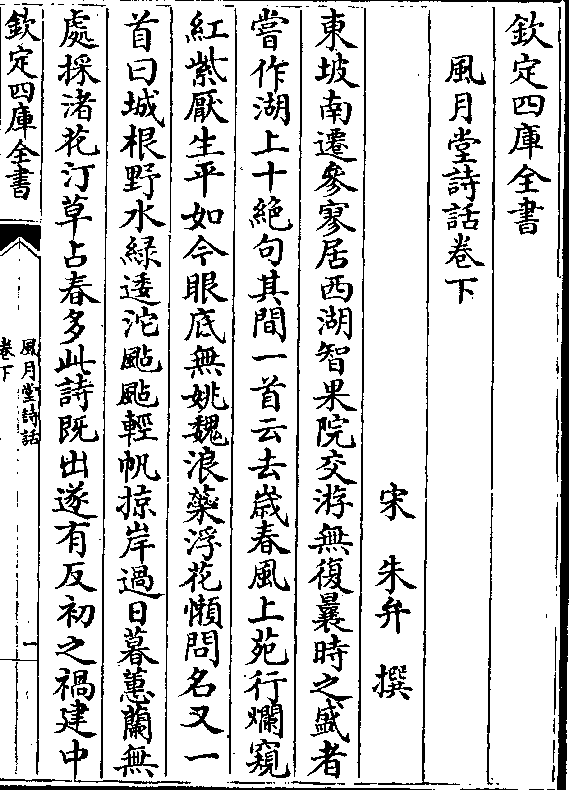 欽定四庫全書
風月堂詩話卷下
宋 朱弁 撰
東坡南遷參寥居西湖智果院交游無復曩時之盛者
嘗作湖上十絶句其間一首云去歲春風上苑行爛窺
紅紫厭生平如今眼底無姚魏浪蘂浮花懶問名又一
首曰城根野水綠逶沱颭颭輕帆掠岸過日暮蕙蘭無
處採渚花汀草占春多此詩既出遂有反初之禍建中
欽定四庫全書
風月堂詩話
卷下
一